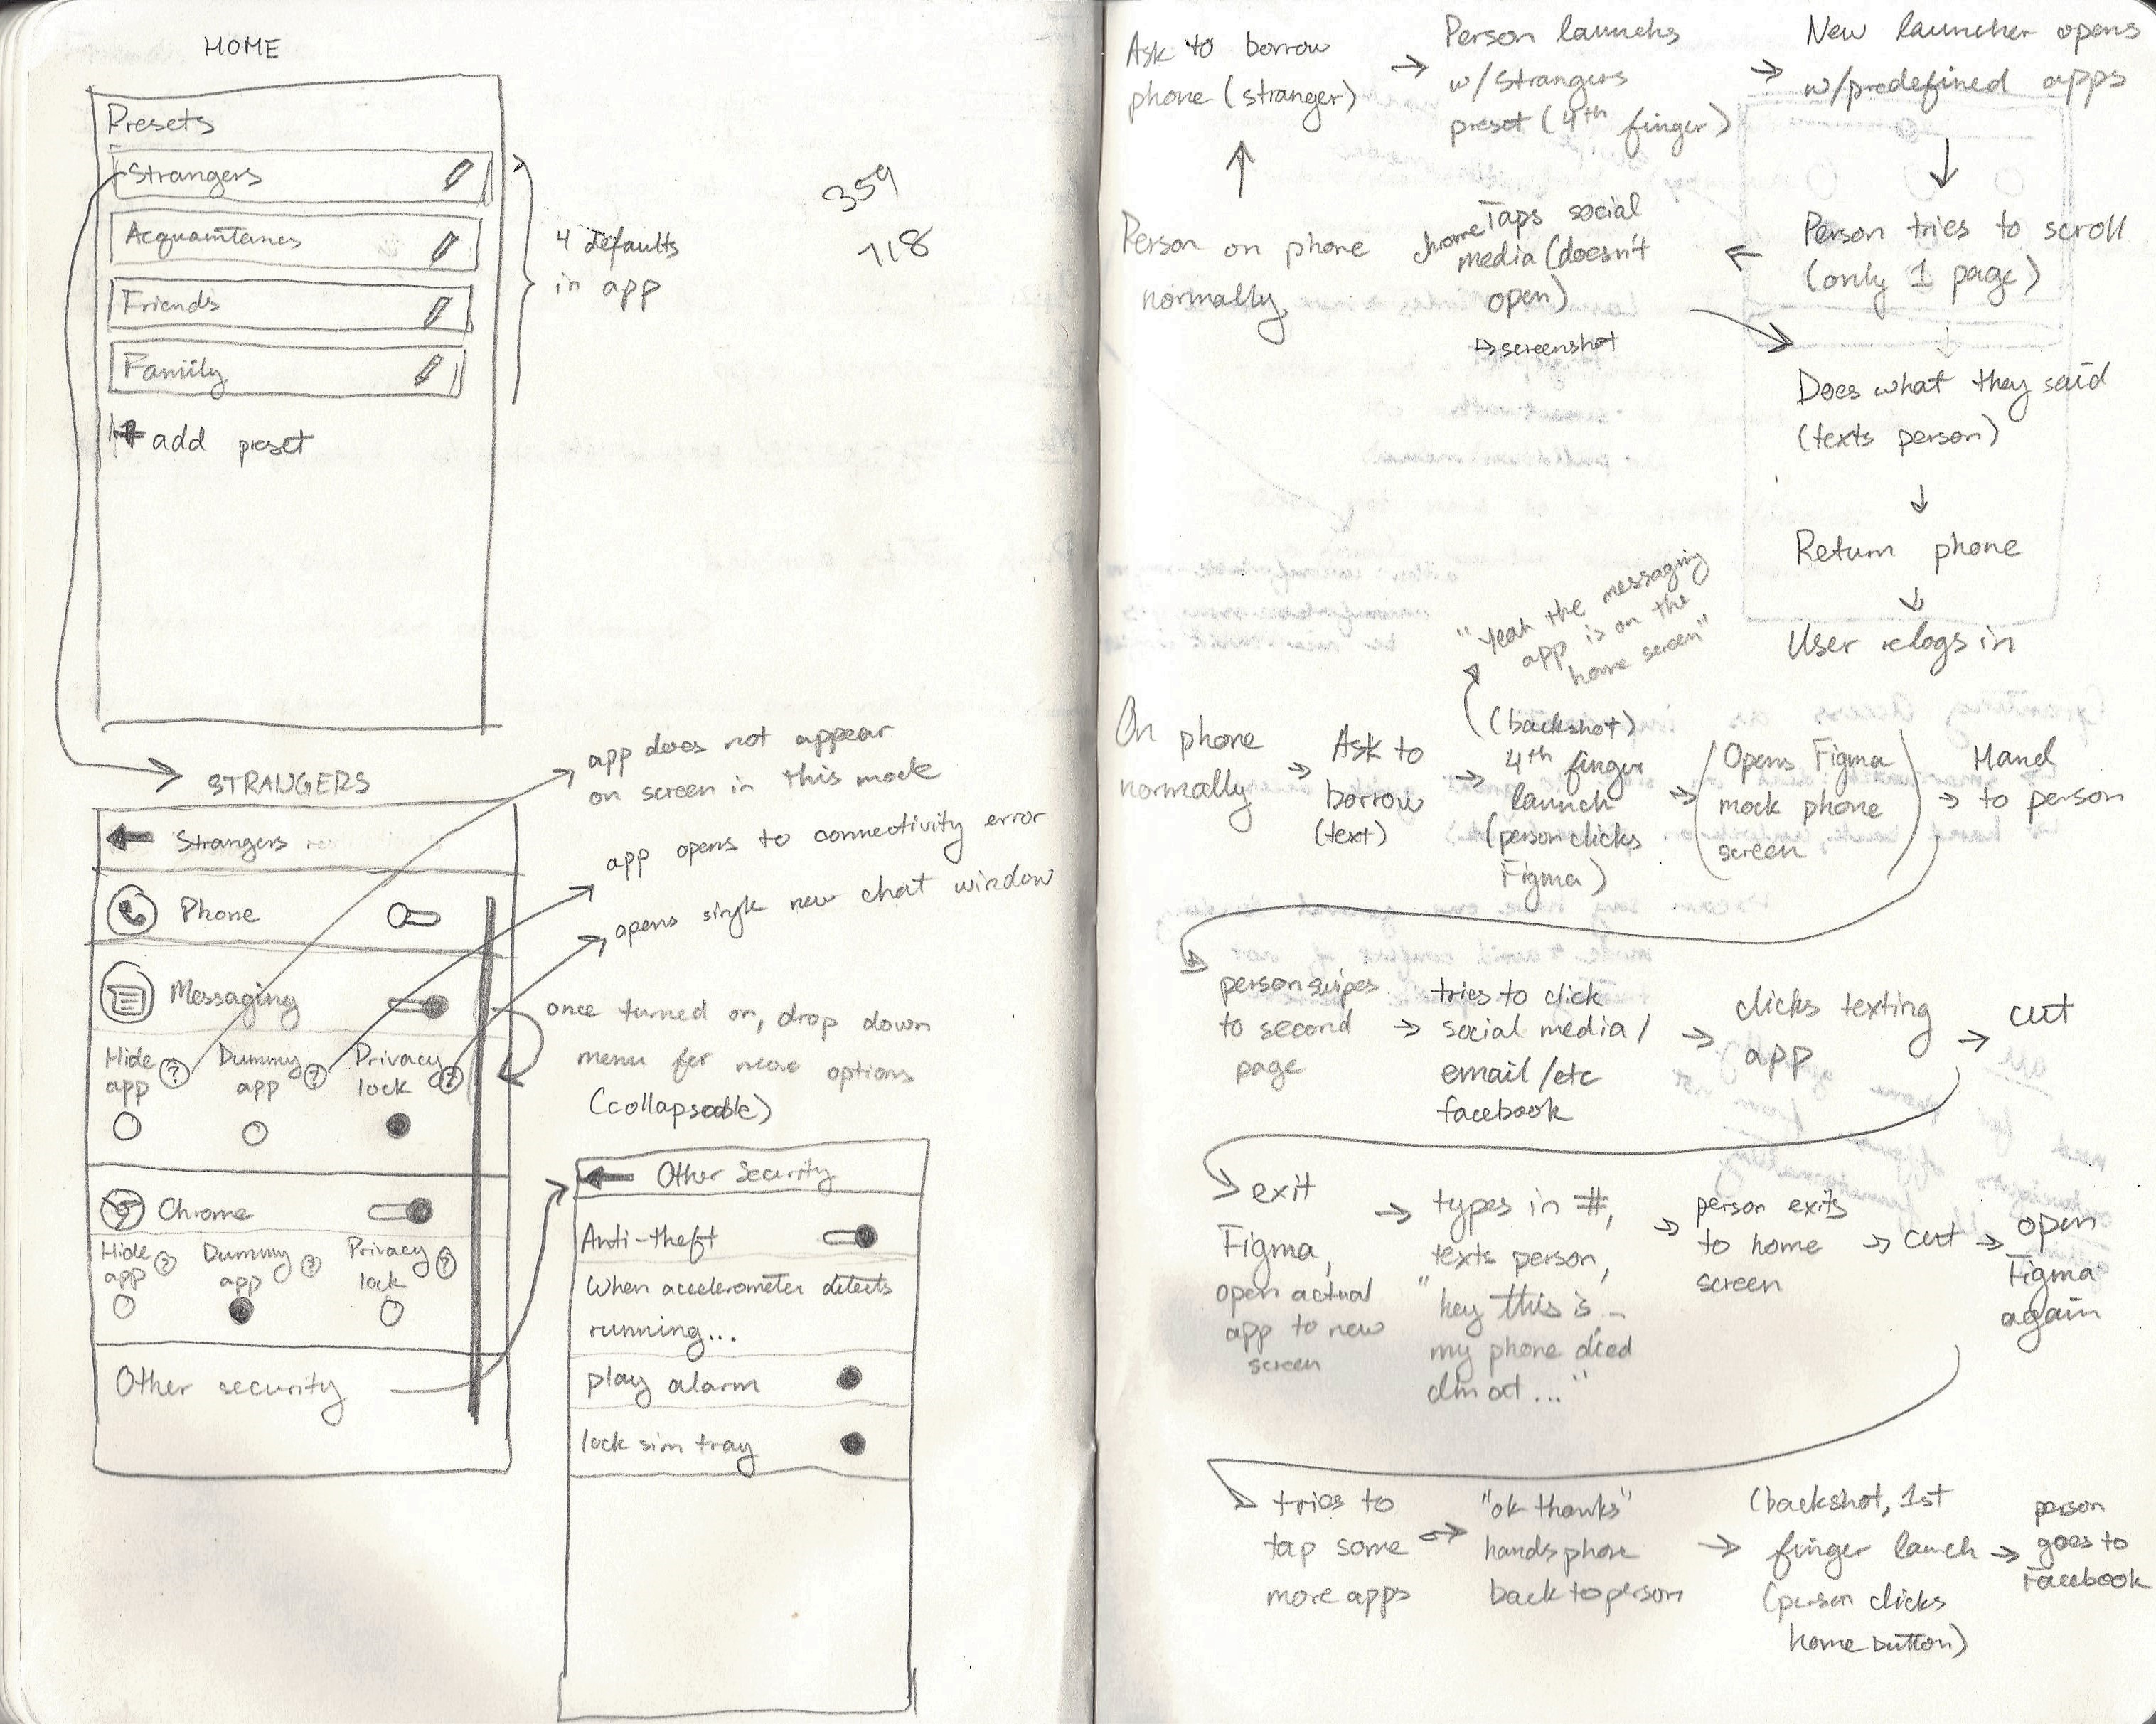 HOME
Presets
Strangers
Acquaintances
Friends
Family
+ add preset
4 defaults
in app
359
718
STRANGERS
Strangers
Phone
Messaging
Hide app ?
Dummy app ?
Privacy lock ?
Chrome
Hide app ?
Dummy app ?
Privacy lock ?
Other security
app does not appear
on screen in this mode
app opens to connectivity error
opens single new chat window
once turned on, drop down
menu for more options
(collapseable)
Other Security
Anti-theft
When accelerometer detects
running...
play alarm
lock sim tray
Ask to borrow
phone (stranger)
→ Person launches
w/ Strangers
preset (4th finger)
→ New launcher opens
w/predefined apps
Person tries to scroll
(only 1 page)
chrome Taps social
media (doesn't
open)
↳ screenshot
Person on phone
normally
Does what they said
(texts person)
↓
Return phone
↓
User relogs in
"yeah the messaging
app is on the
home screen"
On phone
normally
→ Ask to
borrow
(text)
→ (backshot)
4th finger
launch
(person clicks
Figma)
→ (Opens Figma
mock phone
screen)
→ Hand
to person
person swipes
to second
page
→ tries to click
social media/
email/etc
facebook
→ clicks texting
app
→ cut
exit
Figma,
open actual
app to new
screen
→ types in #,
texts person,
"hey this is...
my phone died
dm at..."
→ person exits
to home
screen
→ cut → open
Figma
again
tries to
tap some
more apps
→ "ok thanks"
hands phone
back to person
→ (backshot, 1st
finger launch
(person clicks
home button)
→ person
goes to
Facebook